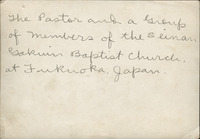 The Pastor and a Group
of Members of the Seinan
Gakuin Baptist Church,
at Fukuoka, Japan.